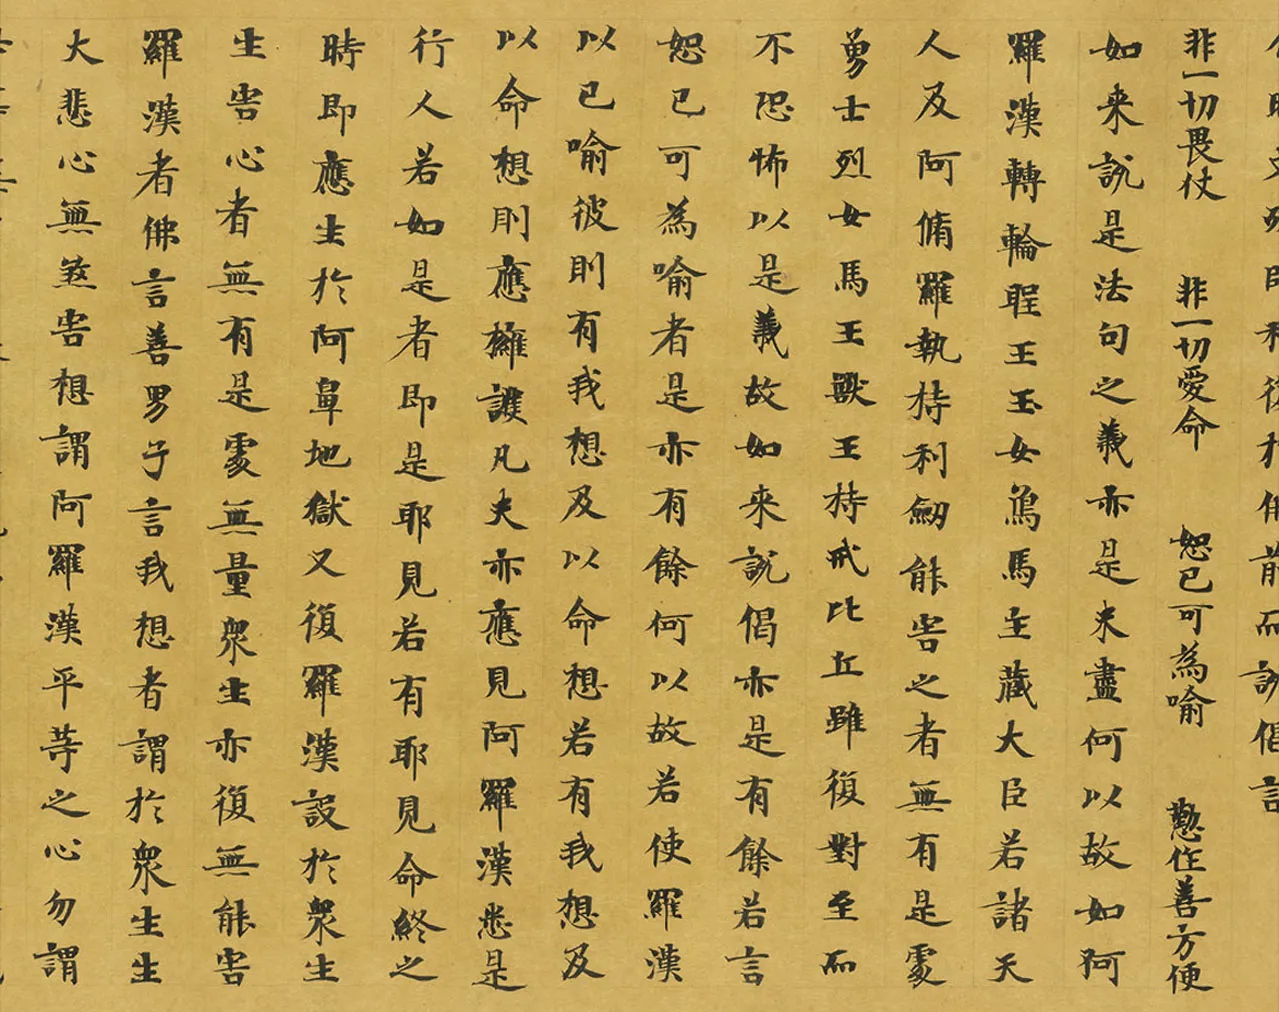 時文殊師利復於佛前而說偈言
非一切畏仗　非一切愛命　恕己可為喻　懃作善方便
如来說是法句之義亦是未盡何以故如阿
羅漢轉輪聖王玉女象馬主藏大臣若諸天
人及阿脩羅執持利劒能害之者無有是處
勇士烈女馬王獸王持戒比丘雖復對至而
不恐怖以是義故如来說偈亦是有餘若言
恕己可為喻者是亦有餘何以故若使羅漢
以己喻彼則有我想及以命想若有我想及
以命想則應擁護凡夫亦應見阿羅漢悉是
行人若如是者即是耶見若有耶見命終之
時即應生於阿鼻地獄又復羅漢設於衆生
生害心者無有是處無量衆生亦復無能害
羅漢者佛言善男子言我想者謂於衆生生
大悲心無煞害想謂阿羅漢平等之心勿謂